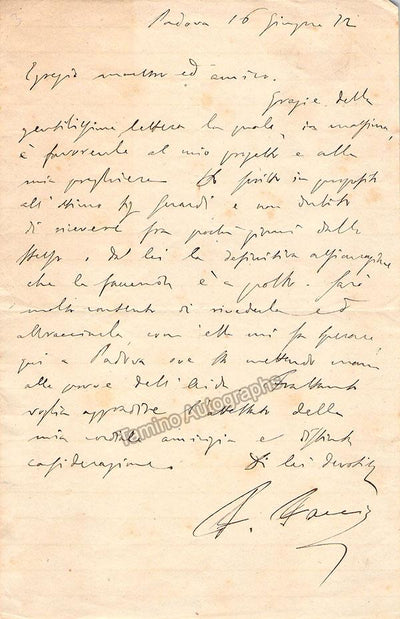 Padova 16 Giugno 72
Egregio maestro ed amico.
Grazie della
gentilissima lettera la quale, in massima,
è favorevole al mio progetto e alla
mia preghiera. Ho scritto in proposito
all'ottimo Sig Gerardi e non dubito
di ricevere fra pochi giorni dallo
stesso e da lei la definitiva
che la faccenda è a posto. Sarò
molto contento di rivederla ed
abbracciarla, com'ella mi fa sperare,
qui a Padova ove sto mettendo mano
alle prove dell'Aida. Frattanto
voglia aggradire l'attestato della
mia cordiale amicizia e distinta
considerazione.
Di lei devotis
F. Faccio
Tamino Autographs